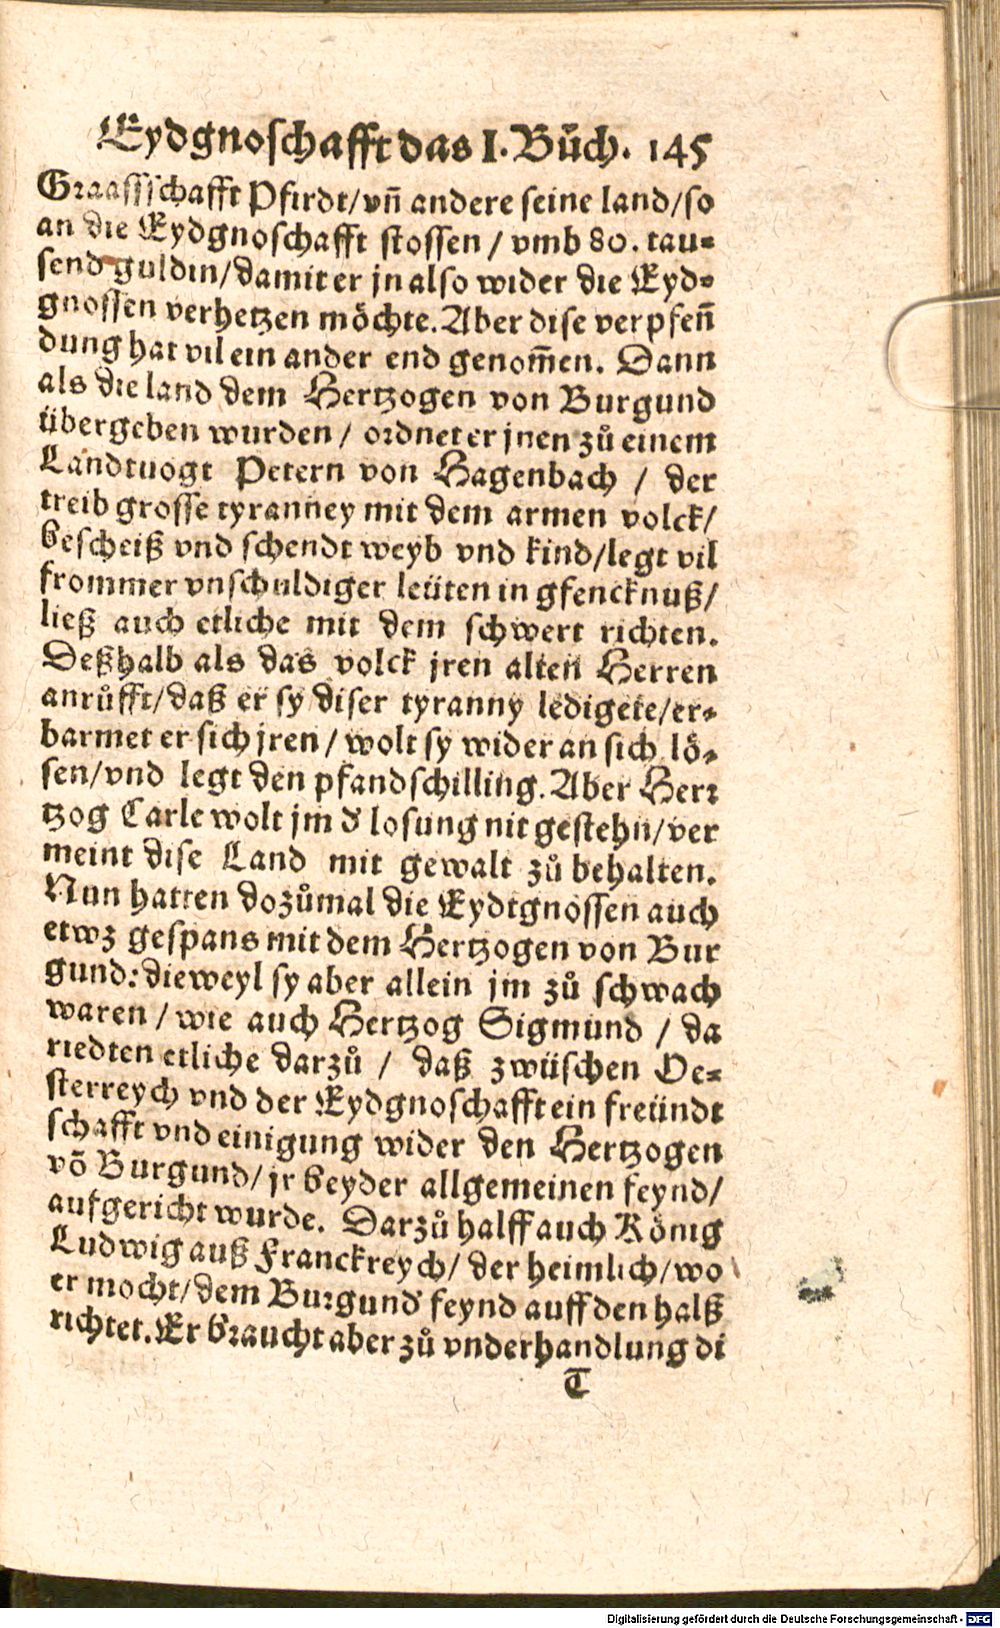 Eydgnoschafft das I. Bůch. 145
Graaffschafft Pfirdt/vñ andere seine land/so
an die Eydgnoschafft stossen / vmb 80. tau-
send guldin/damit er jn also wider die Eyd-
gnossen verhetzen möchte. Aber dise verpfen̄
dung hat vil ein ander end genom̄en. Dann
als die land dem Hertzogen von Burgund
übergeben wurden / ordnet er jnen zů einem
Landtuogt Petern von Hagenbach / der
treib grosse tyranney mit dem armen volck/
bescheiß vnd schendt weyb vnd kind/legt vil
frommer vnschuldiger leüten in gfencknuß/
ließ auch etliche mit dem schwert richten.
Deßhalb als das volck jren alten Herren
anrůfft/daß er sy diser tyranny ledigete/er-
barmet er sich jren / wolt sy wider an sich lö-
sen/vnd legt den pfandschilling. Aber Hertz
tzog Carle wolt jm d̕ losung nit gestehn/ver
meint dise Land mit gewalt zů behalten.
Nun hatten dozůmal die Eydtgnossen auch
etwz gespans mit dem Hertzogen von Bur
gund: dieweyl sy aber allein jm zů schwach
waren / wie auch Hertzog Sigmund / da
riedten etliche darzů / daß zwüschen Oe-
sterreych vnd der Eydgnoschafft ein freündt
schafft vnd einigung wider den Hertzogen
võ Burgund/ jr beyder allgemeinen feynd/
aufgericht wurde. Darzů halff auch König
Ludwig auß Franckreych/ der heimlich/wo
er mocht/dem Burgund feynd auff den halß
richtet. Er braucht aber zů vnderhandlung di
T
Digitalisierung gefördert durch die Deutsche Forschungsgemeinschaft - DFG